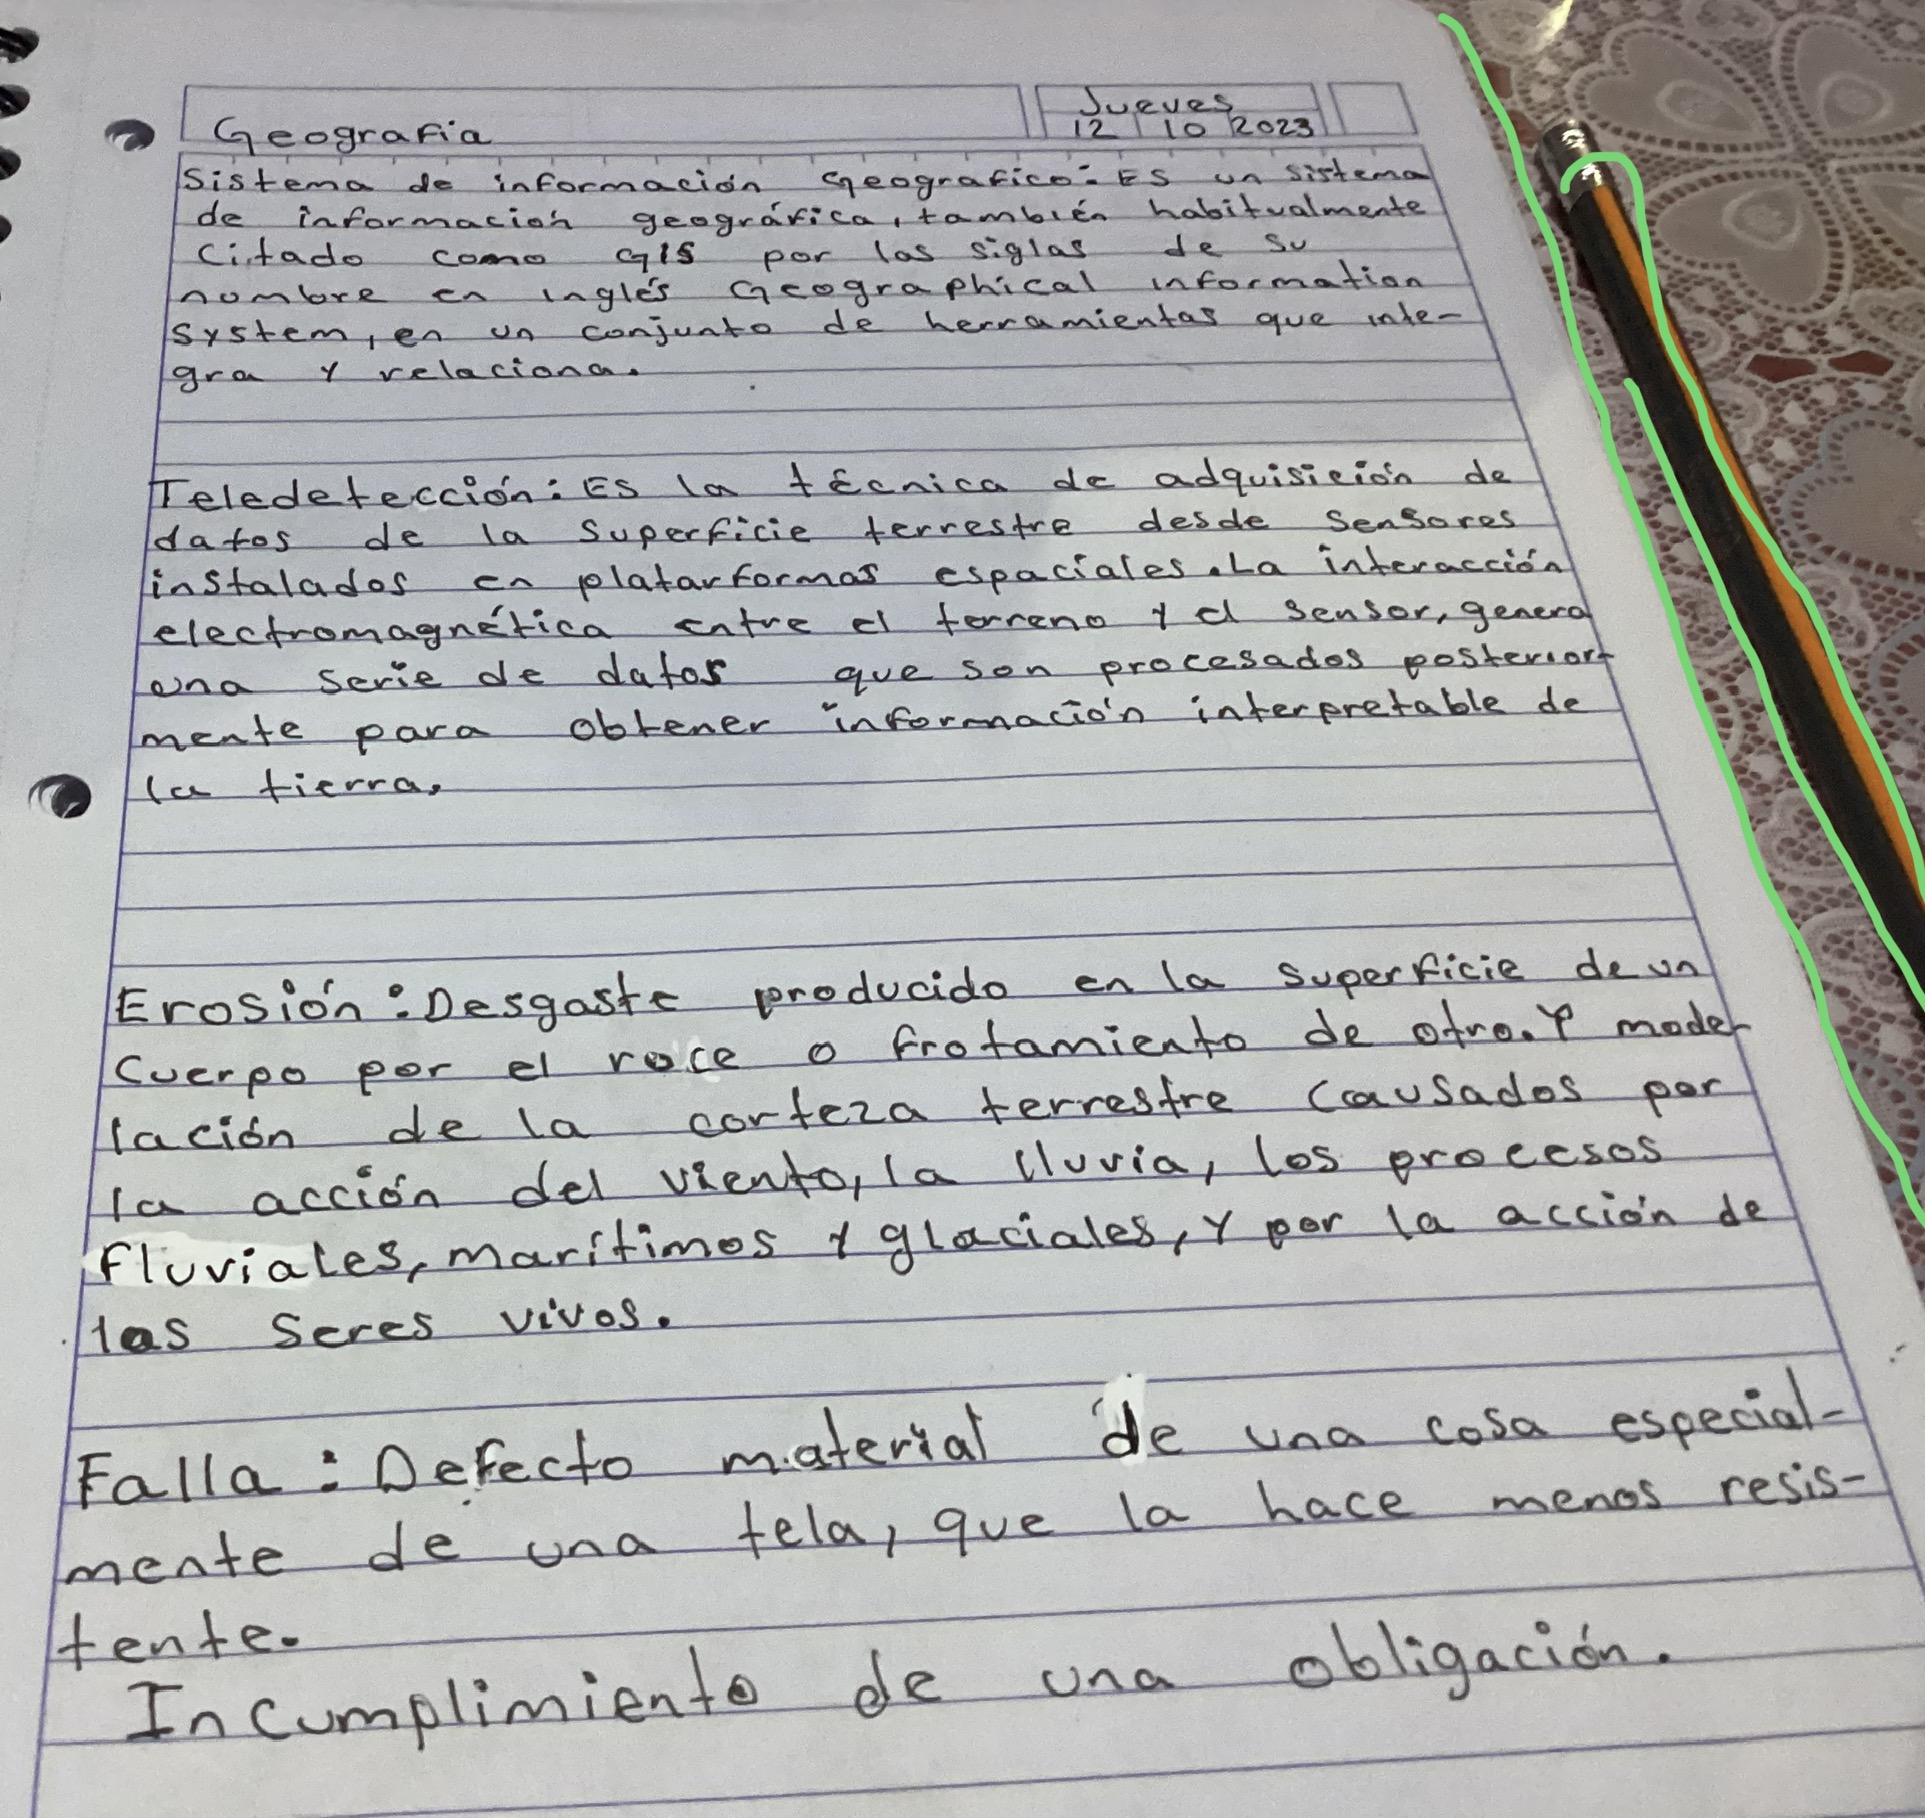 Geografia
Jueves
12 10 2023
Sistema de información Geografico: Es un sistema
de información geográfica, también habitualmente
Citado como GIS por las siglas de su
nombre en inglés Geographical information
System, en un conjunto de herramientas que inte-
gra y relaciona.
Teledetección: Es la técnica de adquisición de
datos de la Superficie terrestre desde Sensores
instalados en platarformas espaciales. La interacción
electromagnética entre el terreno y el Sensor, genera
una serie de datos que son procesados posterior-
mente para obtener información interpretable de
la tierra.
Erosión: Desgaste producido en la superficie de un
Cuerpo por el roce o frotamiento de otro. Y mode-
lación de la corteza terrestre Causados por
la acción del viento, la lluvia, los procesos
fluviales, marítimos y glaciales, y por la acción de
los Seres vivos.
Falla: Defecto material de una cosa especial-
mente de una tela, que la hace menos resis-
tente.
Incumplimiento de una obligación.